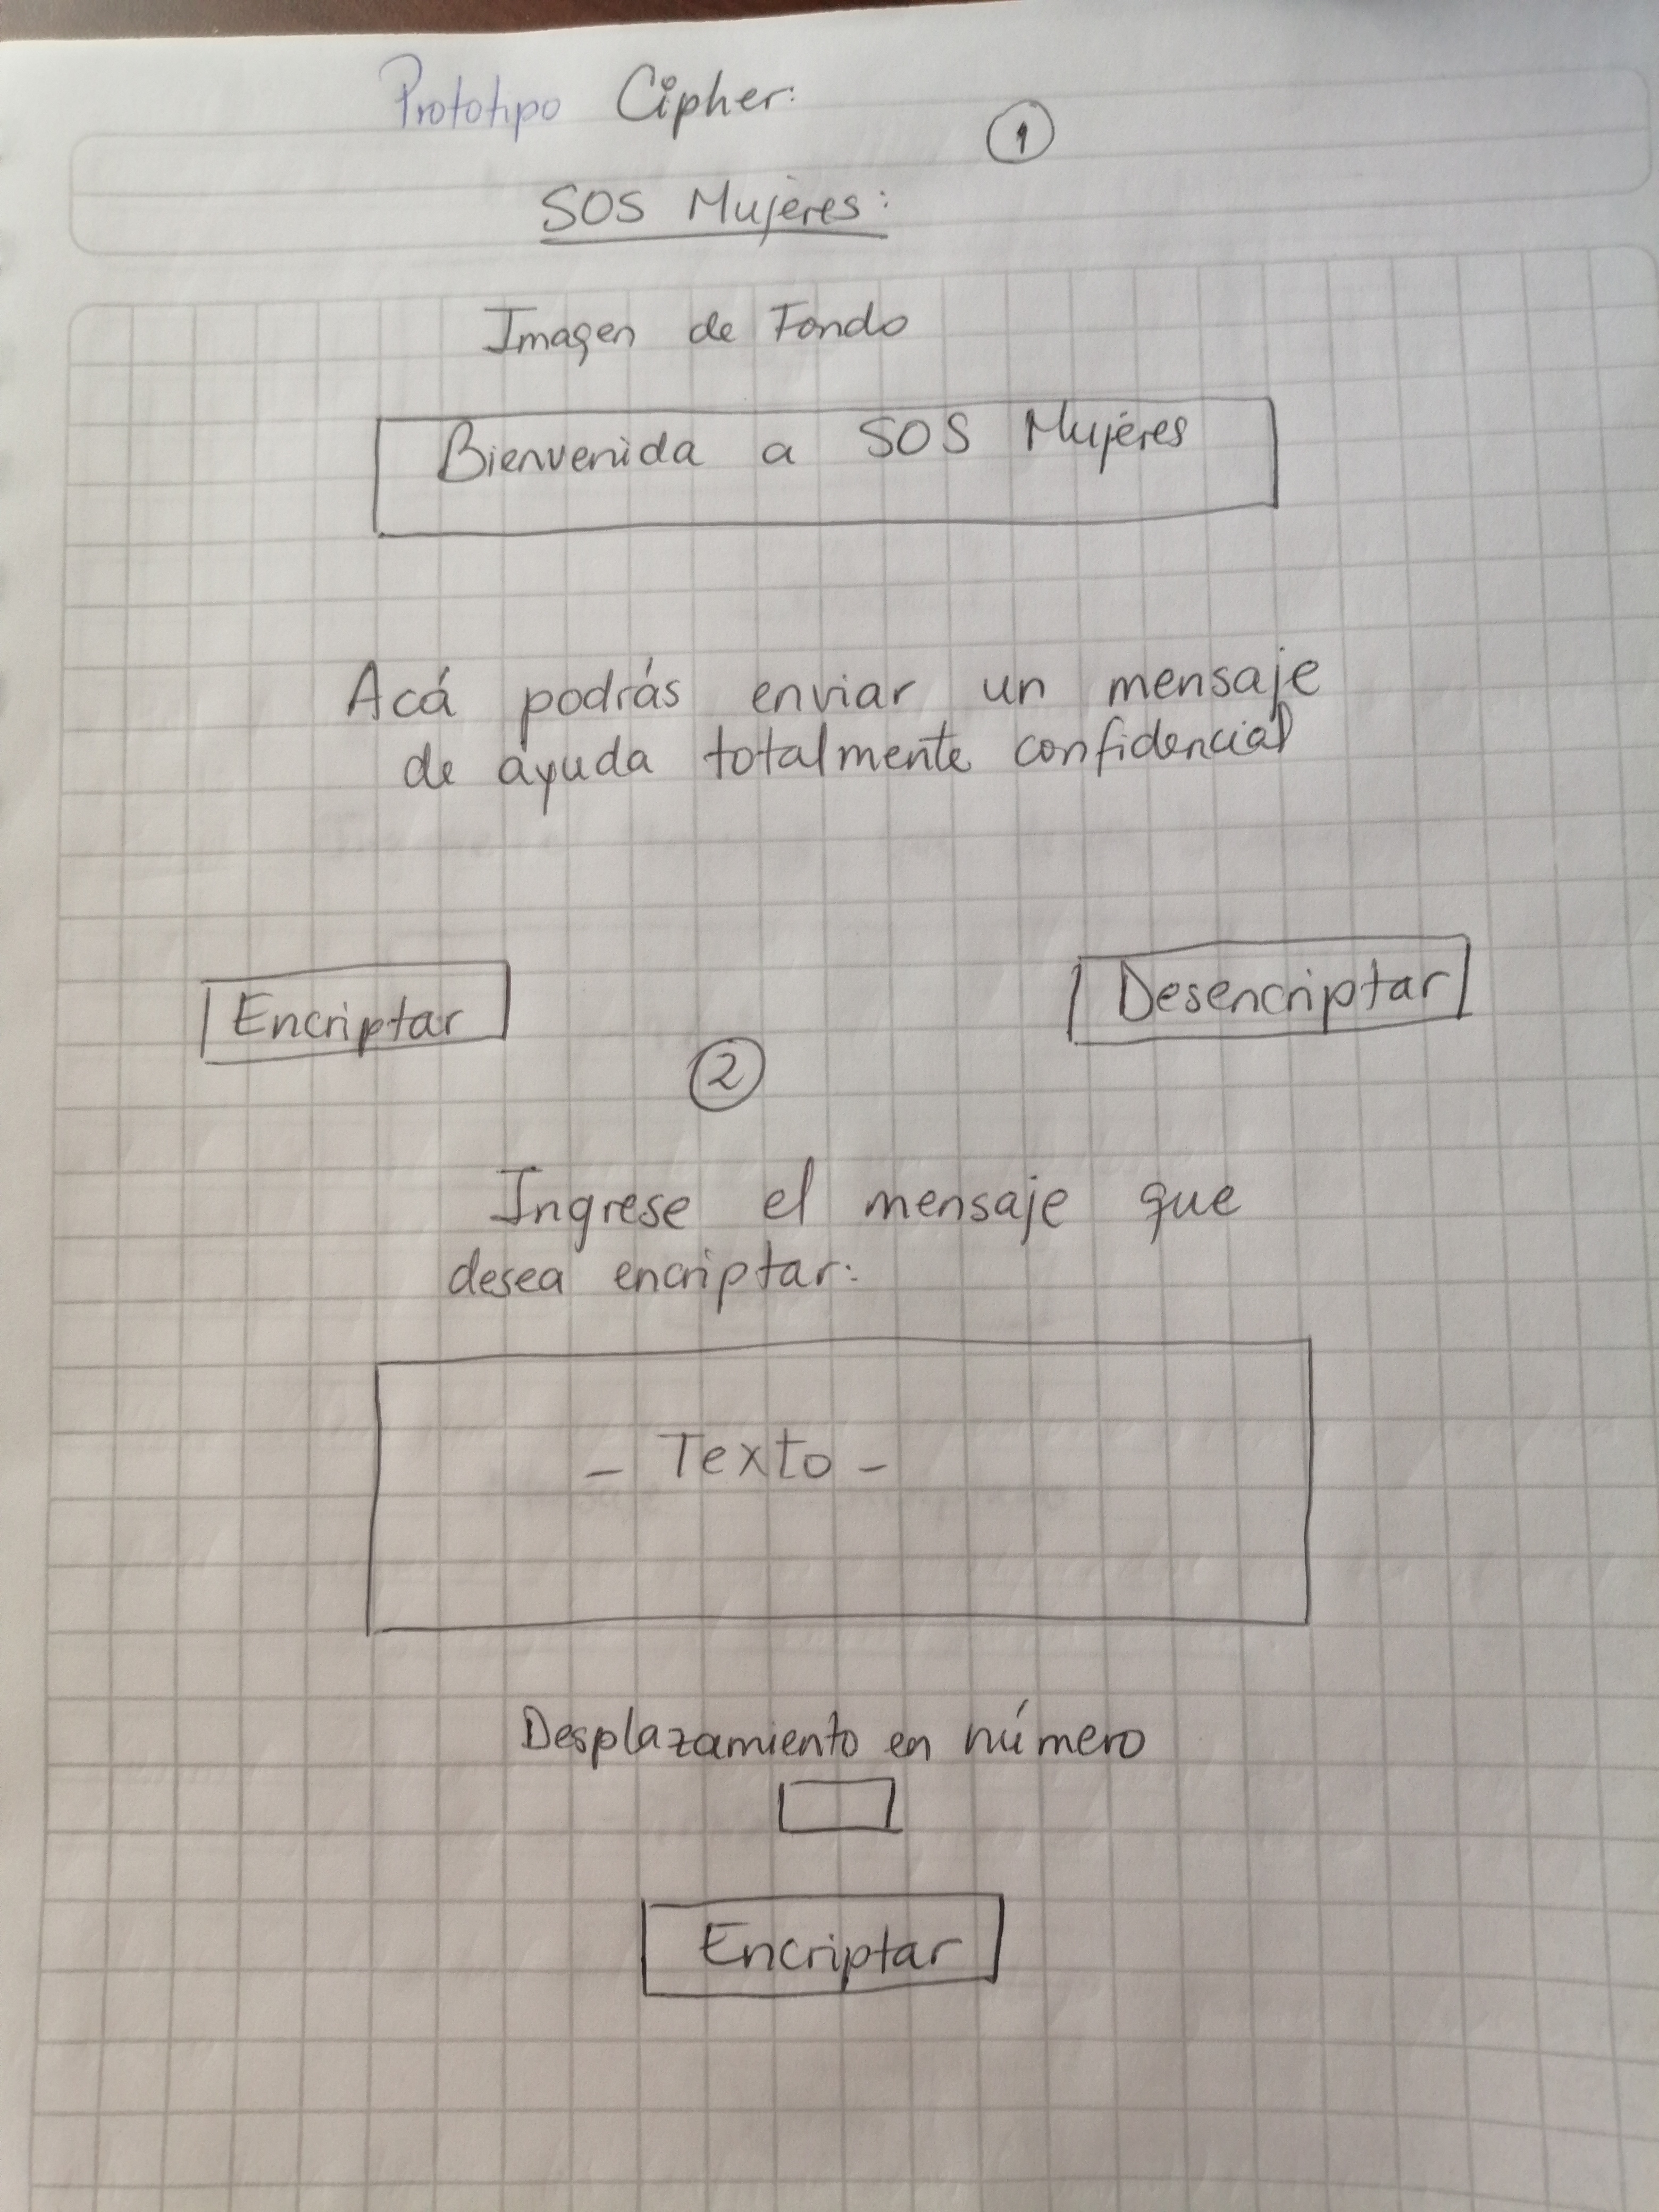 Prototipo Cipher:
1
SOS Mujeres:
Imagen de Fondo
Bienvenida a SOS Mujeres
Acá podrás enviar un mensaje
de ayuda totalmente confidencial
Encriptar
Desencriptar
2
Ingrese el mensaje que
desea encriptar:
- Texto -
Desplazamiento en número
Encriptar